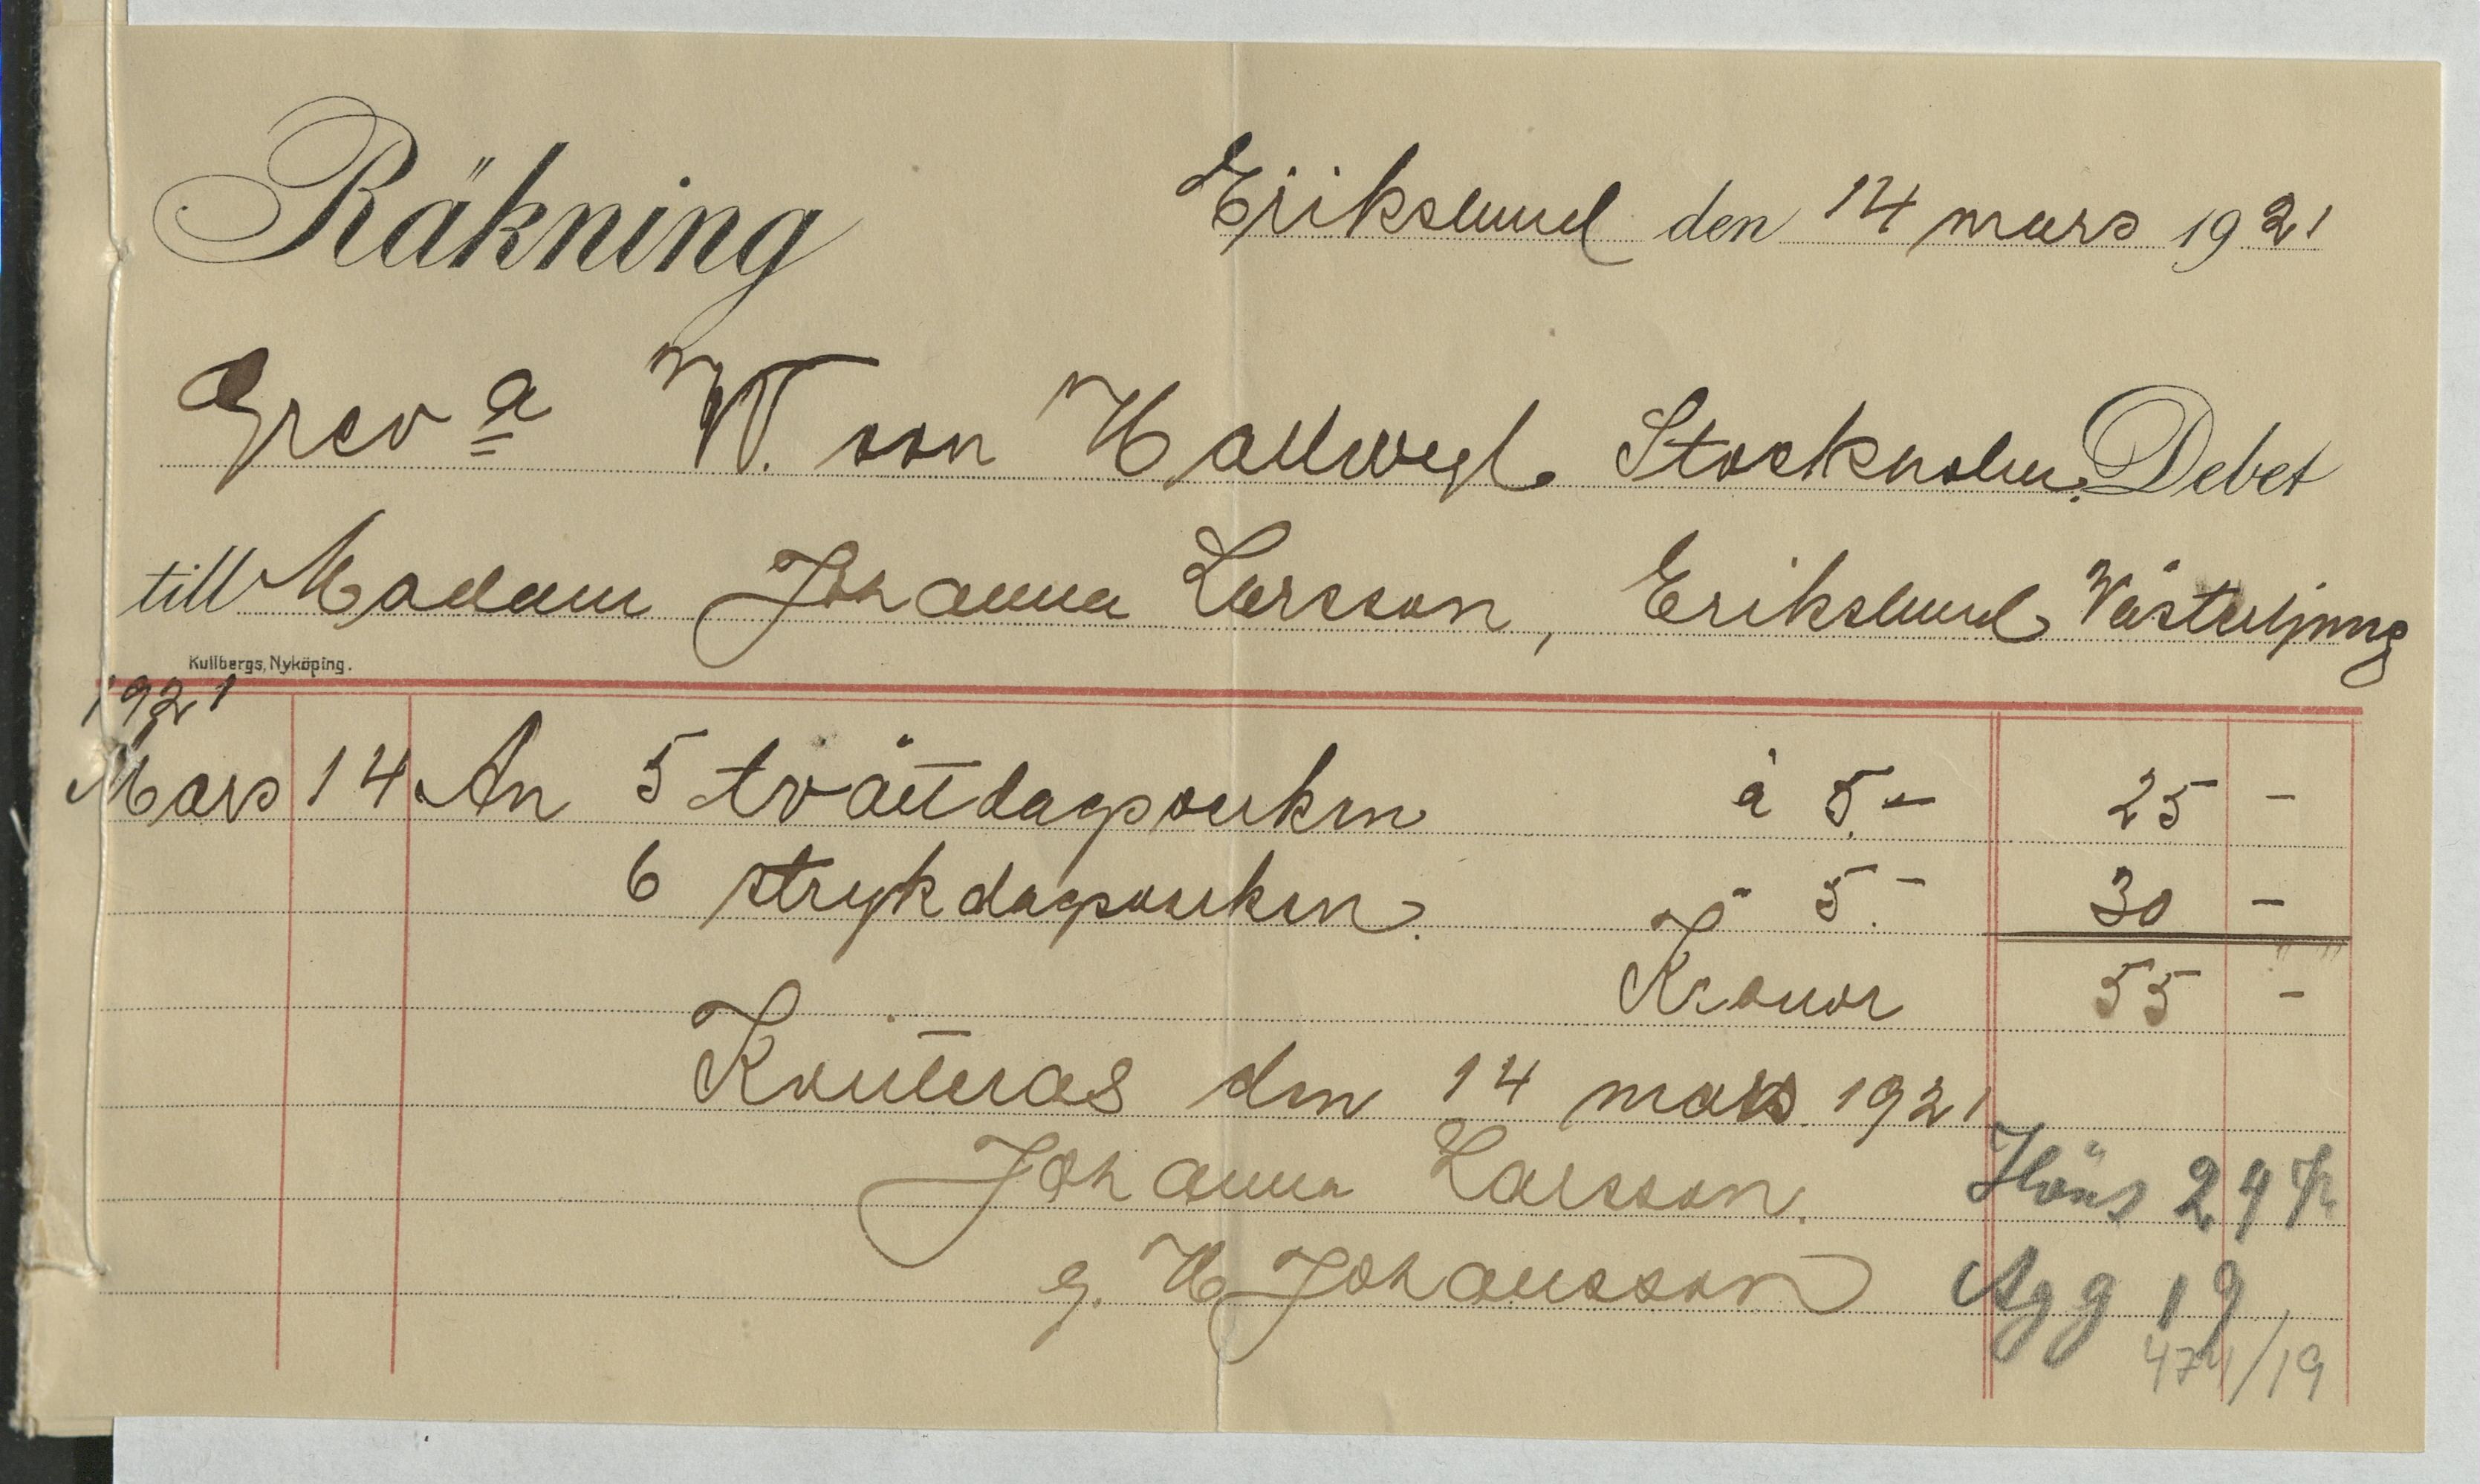 Räkning
Erikslund den 14 mars 1921
Grev a W. von Hallwyl. Stockholm. Debet
till Madam Johanna Larsson, Erikslund Västerljung
Kullbergs, Nyköping.
1921
Mars 14 An 5 tvättdagsverken à 5.- 25 -
6 strykdagsverken. " 5.- 30 -
Kronor 55 -
Kvitteras den 14 mars. 1921
Johanna Larsson.
g. H Johansson
Höns 24 Kr
Ägg 19
/19